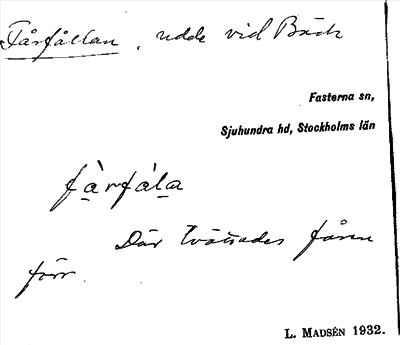 Fårfållan, udde vid Bäck
Fasterna sn,
Sjuhundra hd, Stockholms län
få̱rfǻla̱
Där tvättades fåren
förr.
L. MADSÉN 1932.